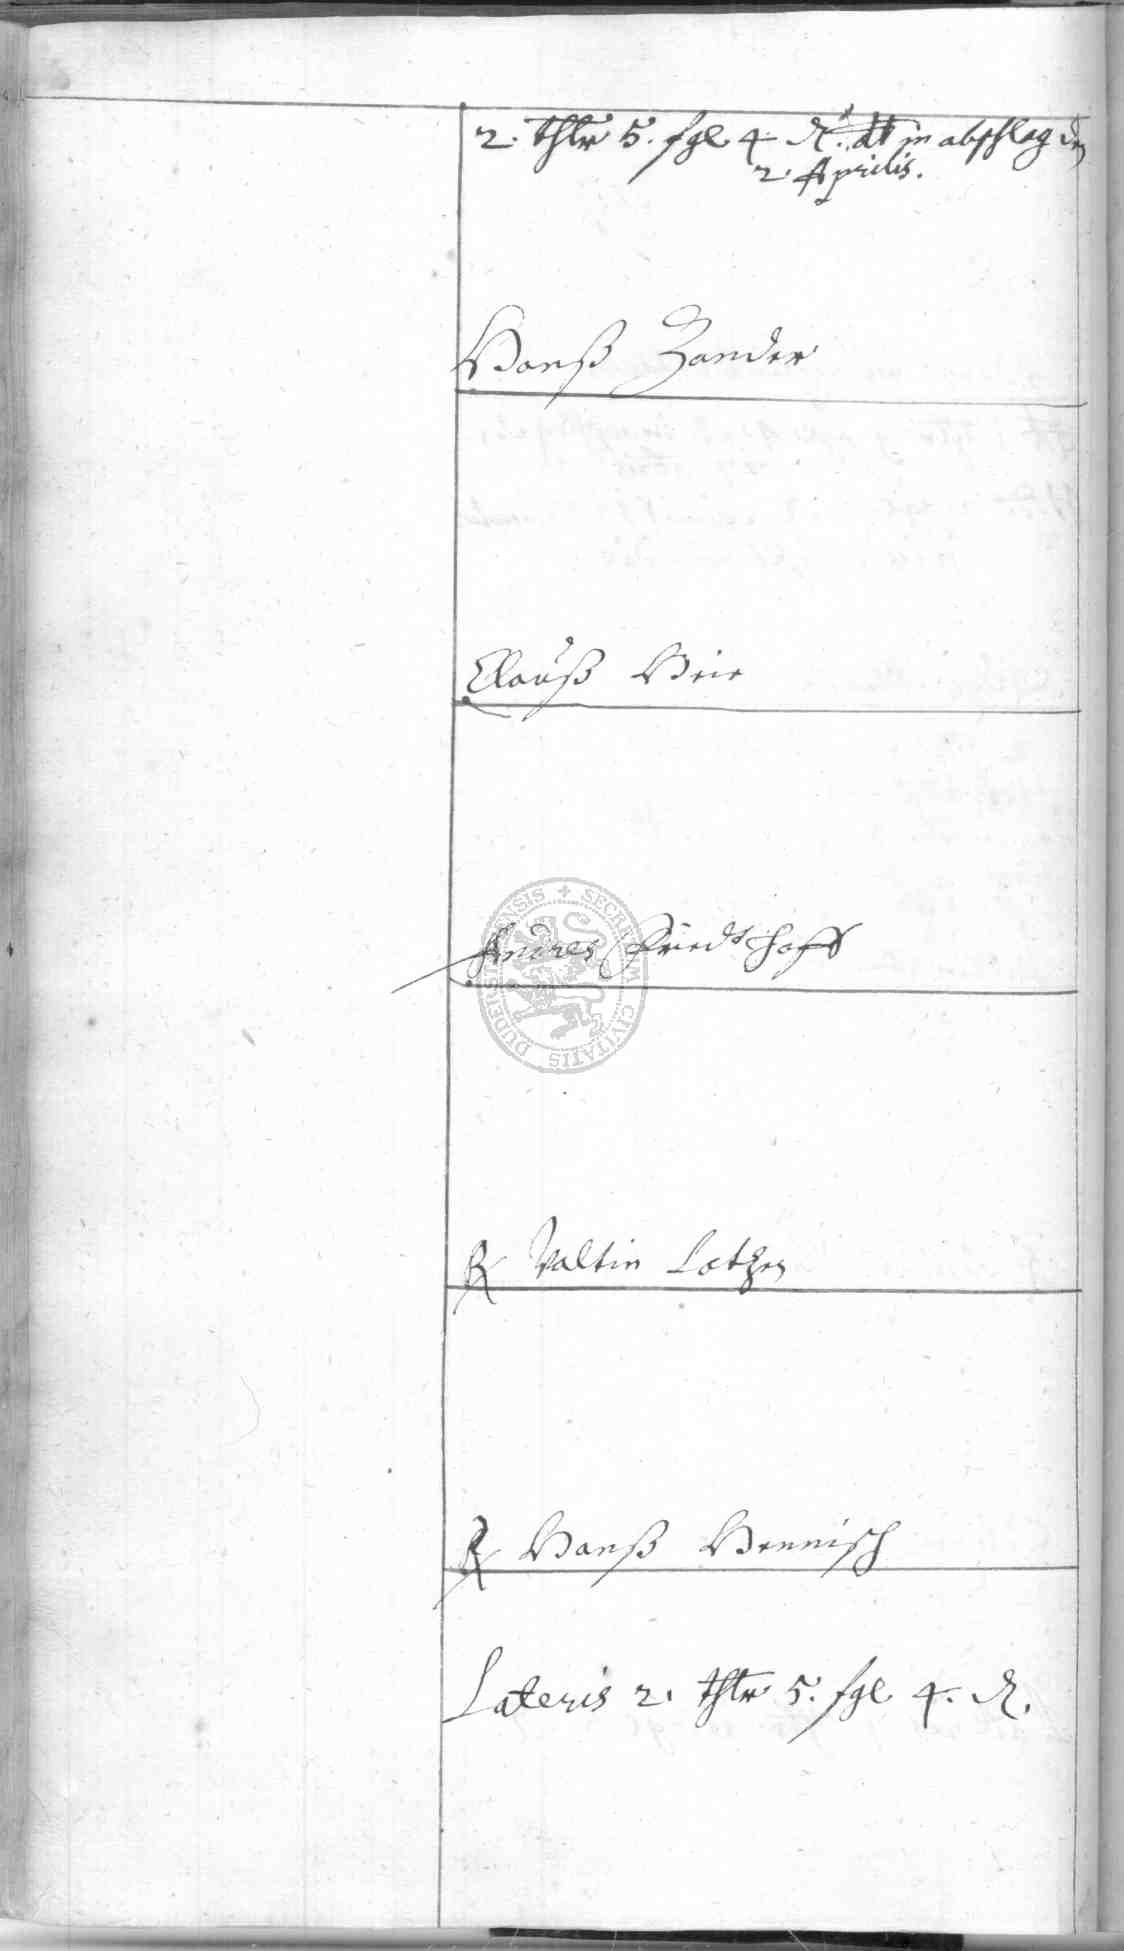 2. thlr 5. sgl. 4 ₰. dt in abschlag den
2. Aprilis.
Hanß Zander
Clauß Heie
Andres Friedthoff
Valtin Lotzen
Hanß Hennisch
Lateris 2. thlr 5. sgl. 4. ₰.
SECRETUM CIVITATIS DUDERSTADENSIS